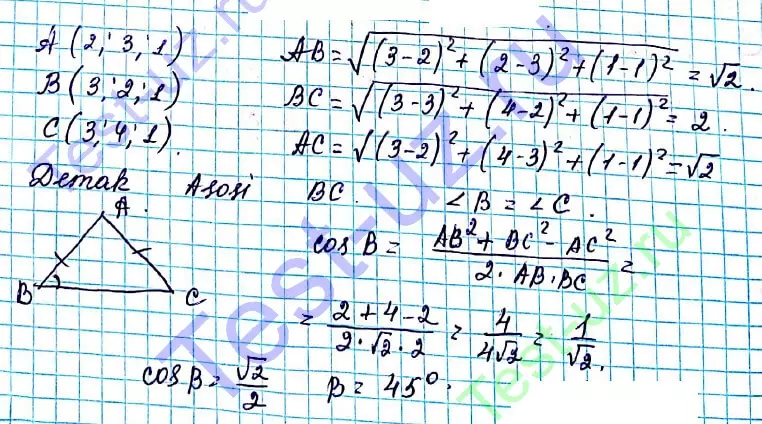 A (2; 3; 1)
B (3; 2; 1)
C (3; 4; 1).
AB = √((3-2)² + (2-3)² + (1-1)²) = √2.
BC = √((3-3)² + (4-2)² + (1-1)²) = 2.
AC = √((3-2)² + (4-3)² + (1-1)²) = √2
Demak Asosi BC. ∠B = ∠C.
A.
B C
cos B = (AB² + BC² - AC²) / (2 · AB · BC) =
= (2 + 4 - 2) / (2 · √2 · 2) = 4 / (4√2) = 1 / √2.
cos B = √2 / 2 B = 45°.
Test-uz.ru
Test-uz.ru
Test-uz.ru